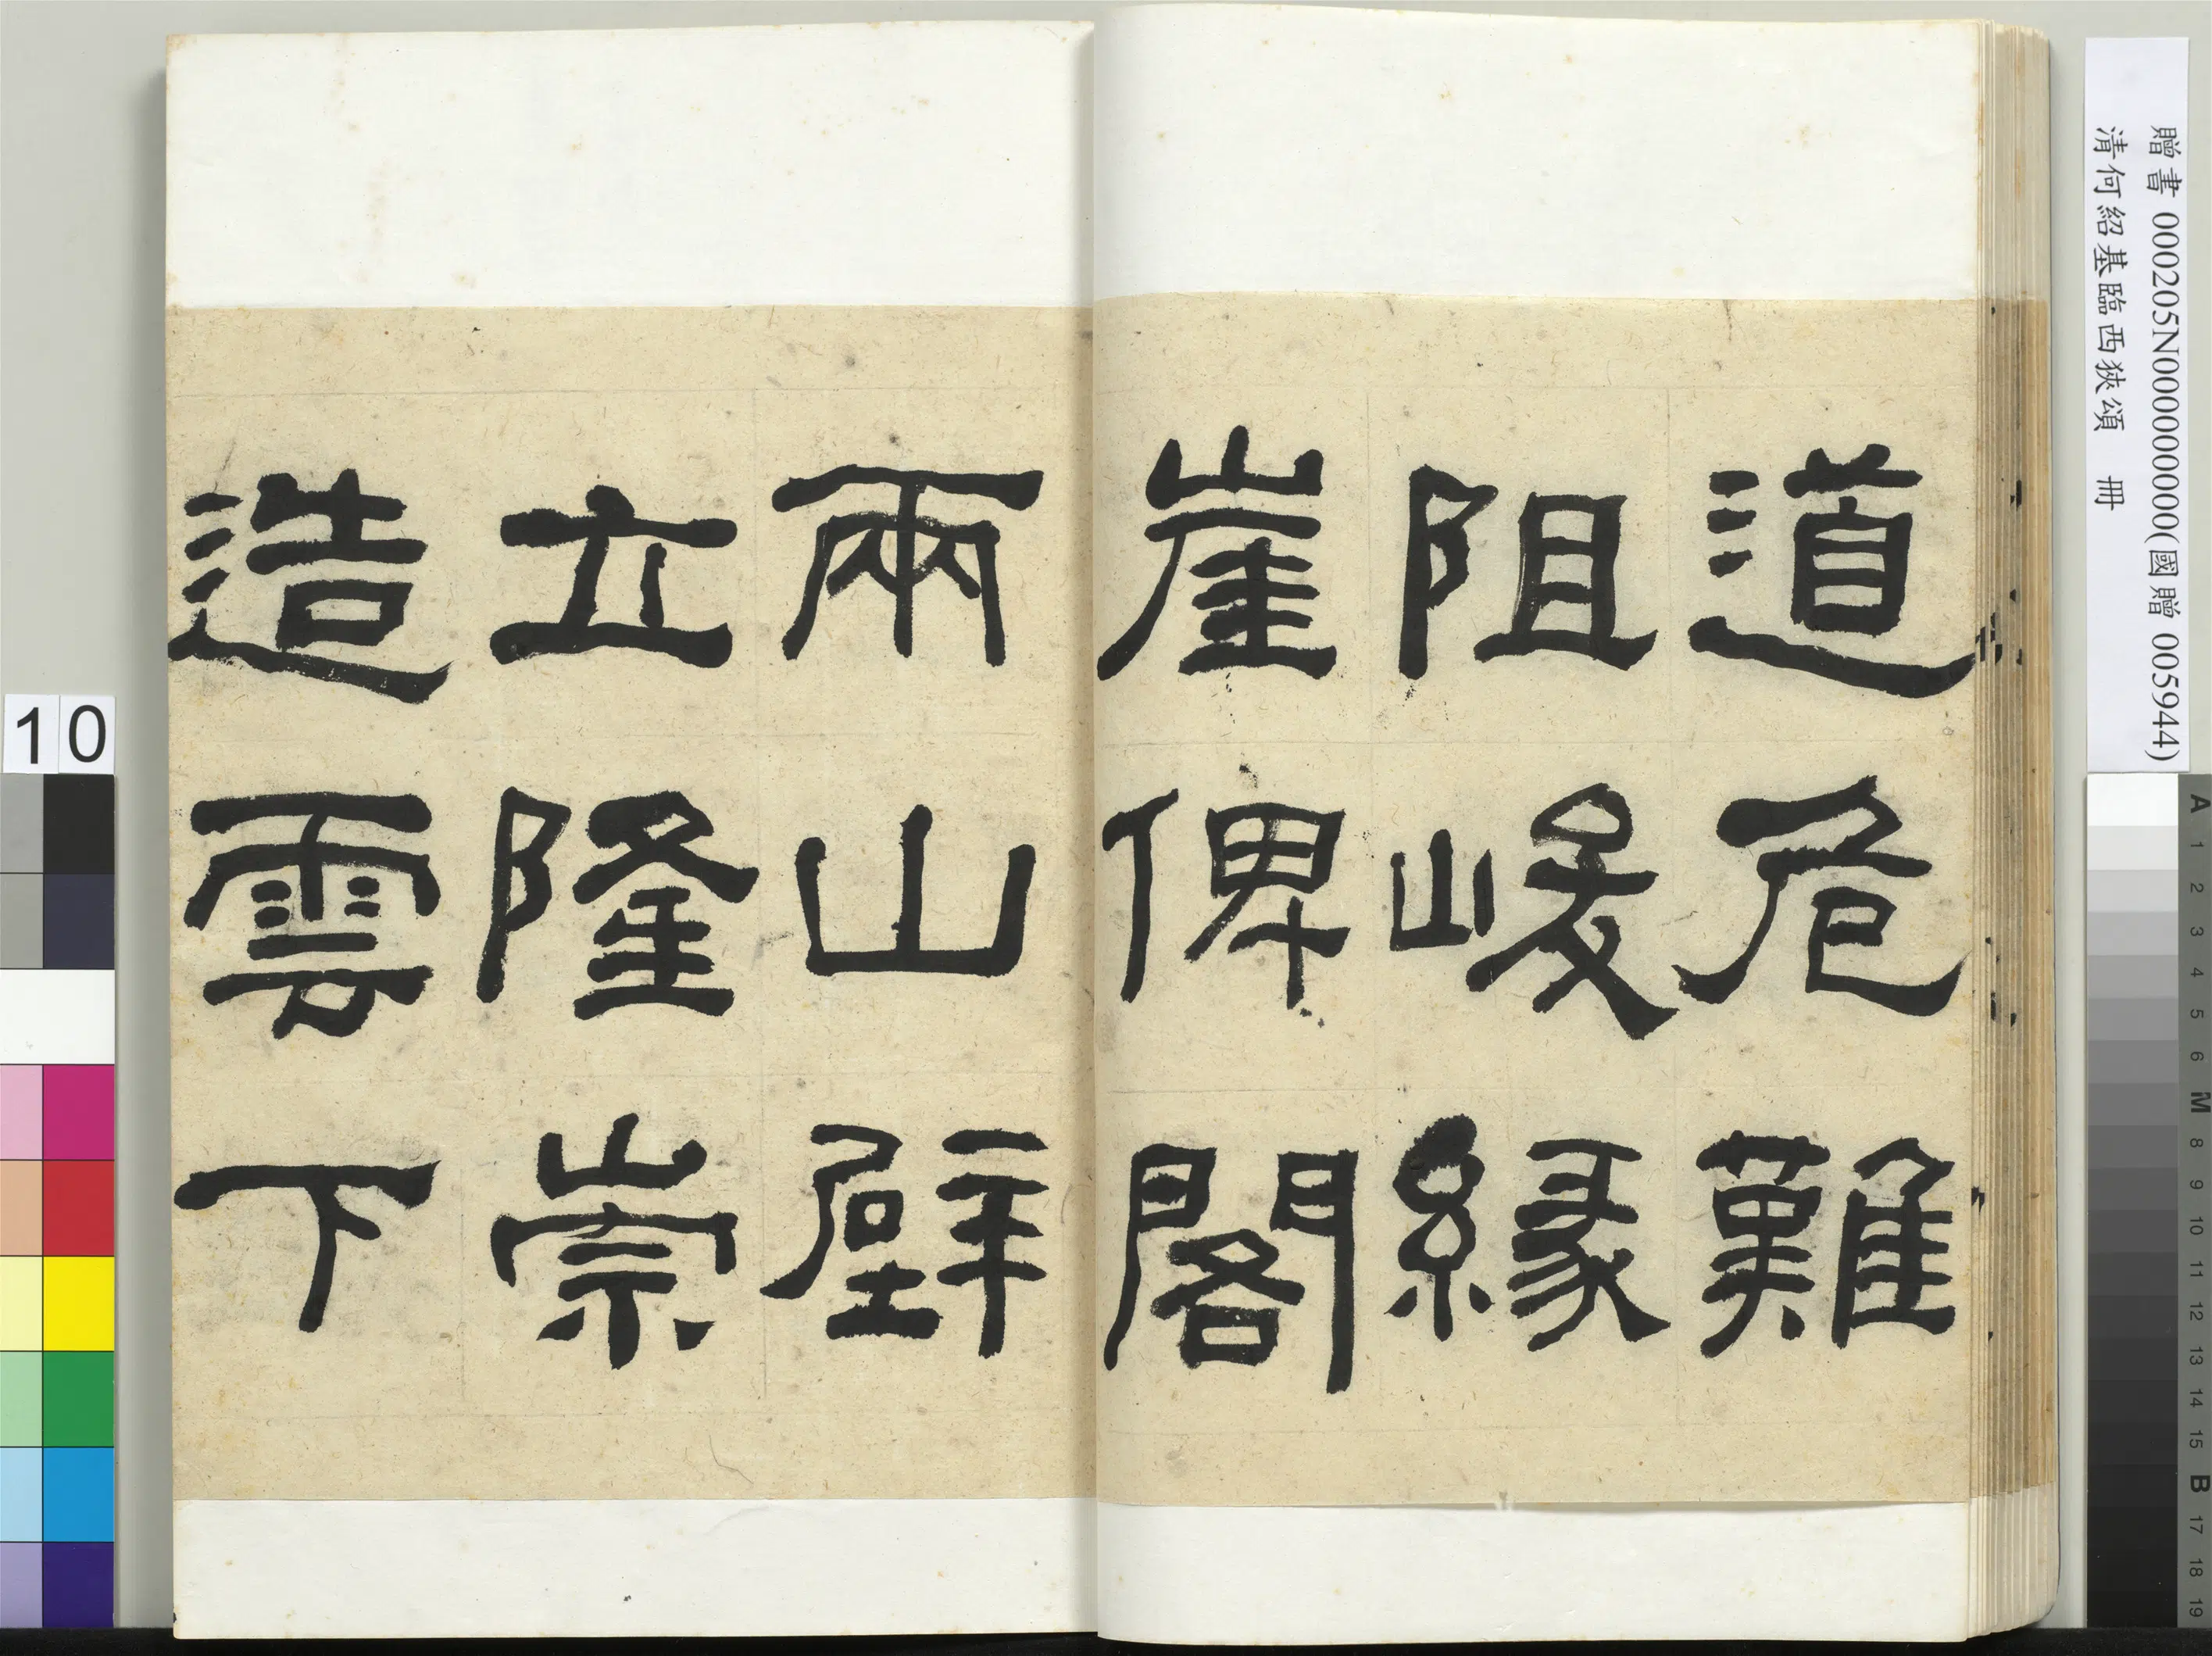 道危難
阻峻緣
崖俾閣
兩山壁
立隆崇
造雲下
贈書 000205N000000000(國贈 005944)
清何紹基臨西狹頌 冊
10
A 1 2 3 4 5 6 M 8 9 10 11 12 13 14 15 B 17 18 19